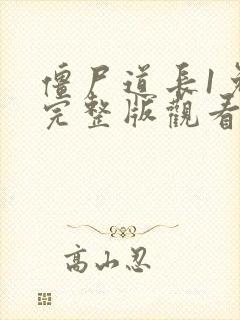 僵尸道長1免
完整版觀看
高山忍